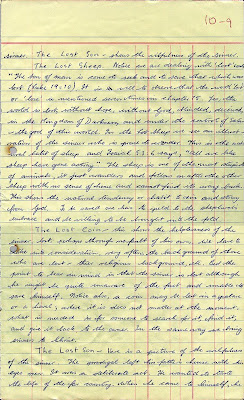 10-9
sinner. The Lost Son - shows the wilfulness of the sinner.
The Lost Sheep. Notice we are dealing with lost souls
"The Son of man is come to seek and to save that which was
lost (Luke 19:10). It is well to know that the word lost
or 'lose' is mentioned seventeen in chapter 15. Yes, the
world is lost without hope, without God, blinded, deceived
in the Kingdom of Darkness and under the control of Satan
the god of this world. In the lost sheep we see an illust-
ration of the sinner who is prone to wander. This is the nat-
ural habit of sheep and Isaiah 53:6 says, "All we like
sheep have gone astray. The sheep is one of the most stupid
of animals, it just wanders and follows on after the other
sheep with no sense of home and cannot find its way back.
This shows the natural tendency or habit to sin and stray
from God. It is never on him to yield to the shepherds
and be willing to be brought into the fold.
The Lost Coin - this shows the helplessness of the
sinner lost perhaps through no fault of his own. We have to
take into consideration, very often, the background of those
who are lost - their religious background, etc. But the
point to bear in mind is that the sinner is lost although
he might be quite unaware of the fact and unable to
save himself. Notice also, a coin may be lost in a palace
or in a hut, when it is does not matter at the moment,
what is needed is for someone to search for it, find it,
and give it back to the owner. In the same way we bring
sinners to Christ.
The Lost Son - here is a picture of the wilfulness
of the sinner. The prodigal left his father's home with his
eyes open. It was a deliberate act. He wanted to taste
the life of the far country. When he came to himself, he